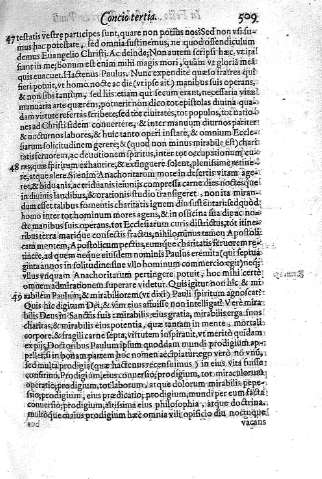 Concio tertia. 509
47 testatis vestræ participes sunt, quare non potius nos? Sed non vsi sumus hac potestate, sed omnia sustinemus, ne quod offendiculum
demus Euangelio Christi. Ac deinde; Non autem scripsi hæc, vt ita
fiant in me; bonum est enim mihi magis mori, quàm vt gloriā meā
quis euacuet. Hactenus Paulus. Nunc expendite quæso fratres qui
fieri potuit, vt homo nocte ac die (vt ipse ait) manibus operans,
& non sibi tantùm, sed his etiam qui secum erant, necessaria vitæ
manuaria arte quærēs, potuerit non dico tot epistolas diuina quadam virtute refertas scribere, sed tot ciuitates, tot populos, tot nationes ad Christi fidem conuertere, & inter manuum diurnos pariter
& nocturnos labores, & huic tanto operi instare, & omnium Ecclesiarum solicitudinem gerere; & (quod non minus mirabile est) charitatis feruorem, ac deuotionem spiritus, inter tot occupationes
quæ spiritum exhaurire, & extinguere solent, plenissimè retinere, atque alere. Si enim Anachoritarum more in deserto vitam
ageret, & biduanis, ac triduanis ieiuniis compressa carne dies noctesque
in diuinis laudibus, & orationis studio transigeret, non ita mirandum esset talibus fomentis charitatis ignem diu sustentari: sed quòd
homo inter tot hominum mores agens, & in officina sua die ac nocte manibus suis operans, tot Ecclesiarum curis districtus, tot itineribus terra marique confectis fractus, nihilominus tamen Apostolicam mentem, Apostolicum pectus, eumque charitatis feruorem retineret, ad quem neque eiusdem nominis Paulus eremita
annos in solitudine sine vllo hominum commercio egit) neque
vllus vnquam Anachoritarum pertingere potuit, hoc mihi certè
omnem admirationem superare videtur. Quis igitur non hîc & mirabilem Paulum, & mirabiliorem (vt dixi) Pauli spiritum agnoscat?
49 Quis hîc digitum Dei, & vim eius affuisse non intelligat? Verè mirabilis Deus in Sanctis suis: mirabilis eius gratia, mirabilis erga suos
charitas, & mirabilis eius potentia, quæ tantam in mente, mortali
corpore, & fragili carne septa, virtutem inspirauit, vt meritò quidam
ex piis Doctoribus Paulum ipsum quoddam mundi prodigium appellet; si in bonam partem hoc nomen accipiatur: ego verò nō vnū,
sed multa prodigia (quæ hactenus recensuimus) in eius vita fuisse
confirmo. Prodigium, eius conuersio; prodigium, tot miraculorum
operatio; prodigium, tot laborum, atque dolorum mirabilis perpessio; prodigium, eius prædicatio; prodigium, mundi per eum facta
conuersio; prodigium, altissima eius philosophia, atque doctrina.
multoque maius prodigium hæc omnia vili opificio diu noctuque
vacans